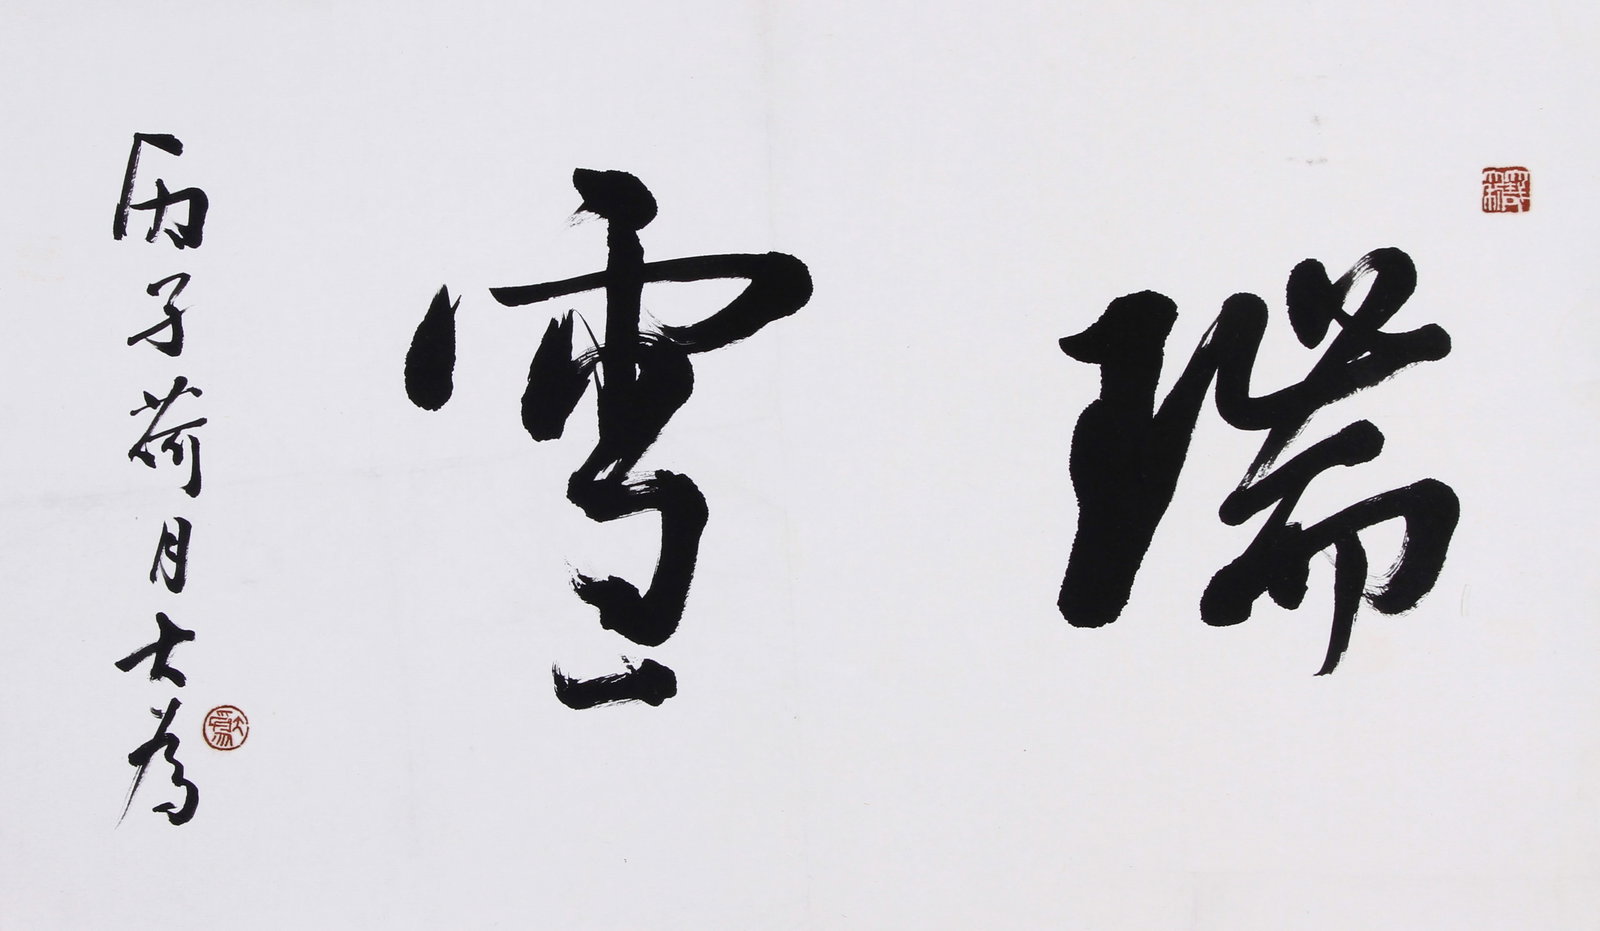 瑞雪
丙子荷月大為